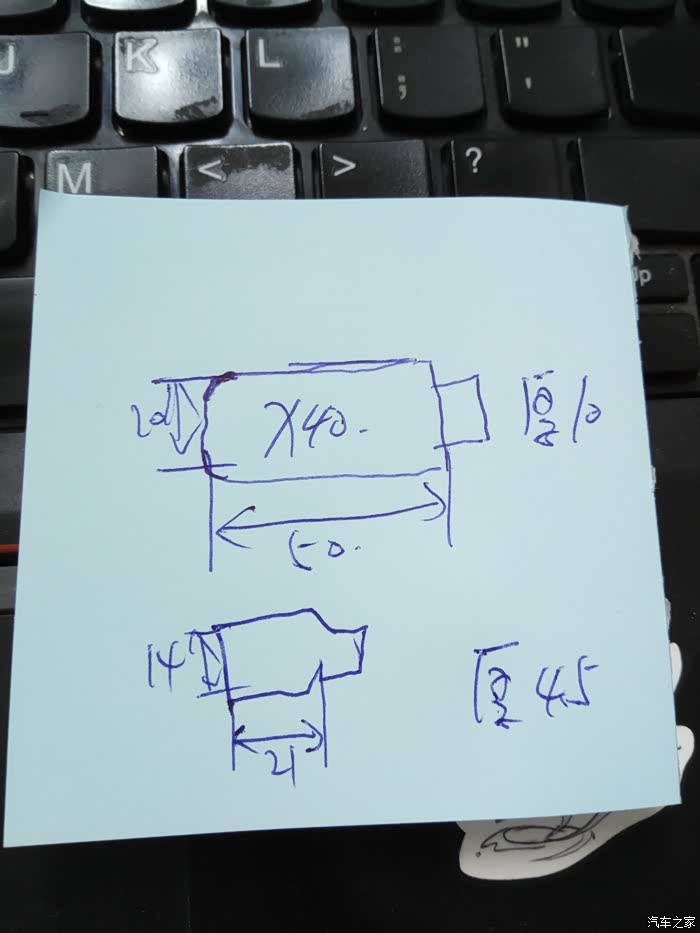 J K L : ; " '
M < > ?
up
20 X40. 厚10
50.
14 厚4.5
21
汽车之家